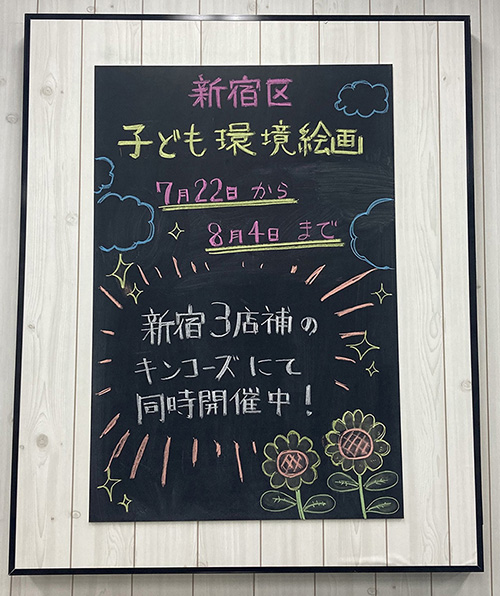 新宿区
子ども環境絵画
7月22日から
8月4日まで
新宿3店補の
キンコーズにて
同時開催中!